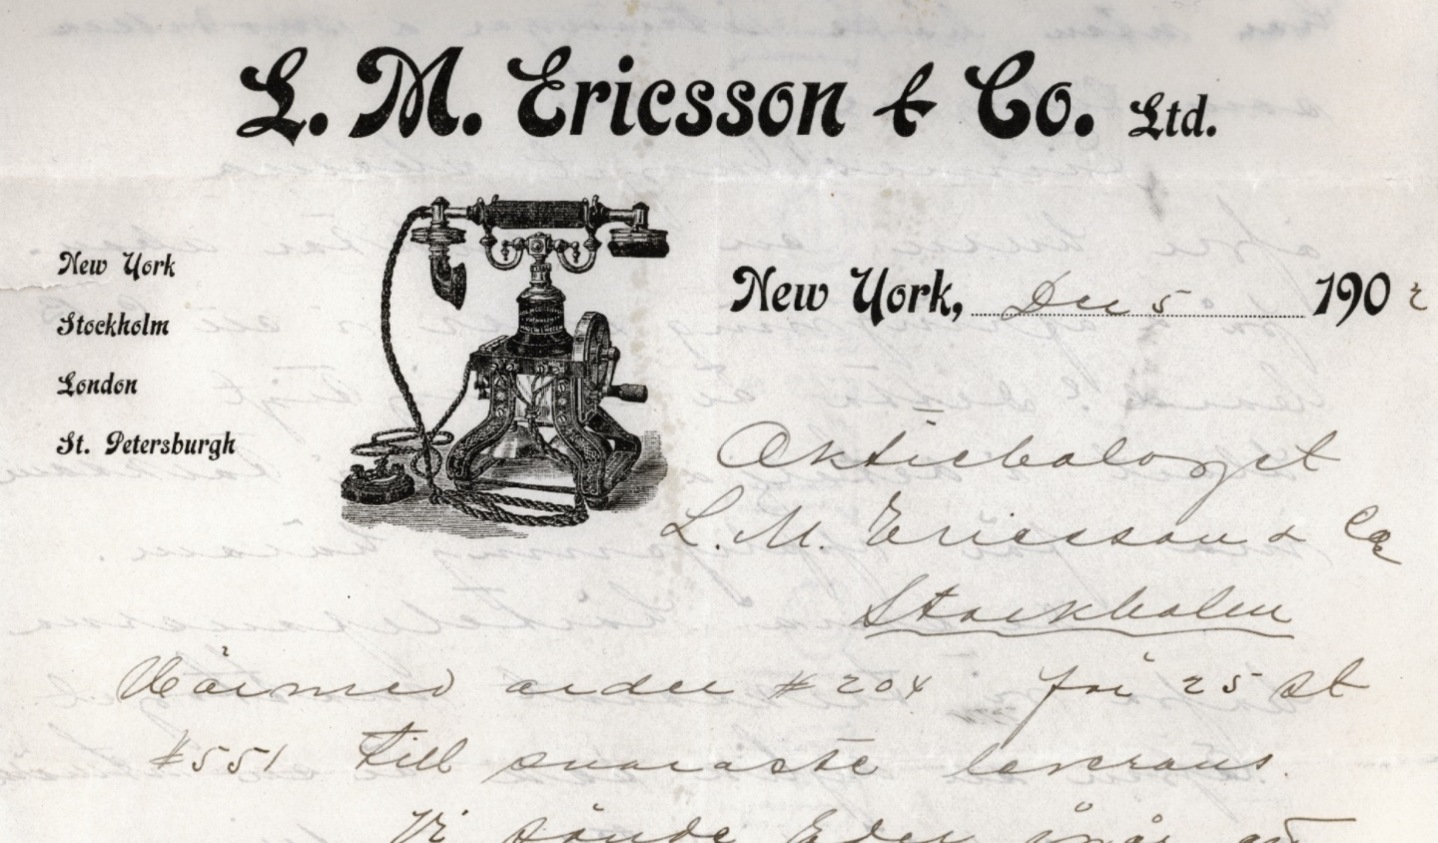 L. M. Ericsson & Co. Ltd.
New York
Stockholm
London
St. Petersburgh
New York, Dec 5 1902
Aktiebolaget
L. M. Ericsson & Co
Stockholm
Härmed order # 204 för 25 st
#551 till snaraste leverans.
Vi sände Eder igår